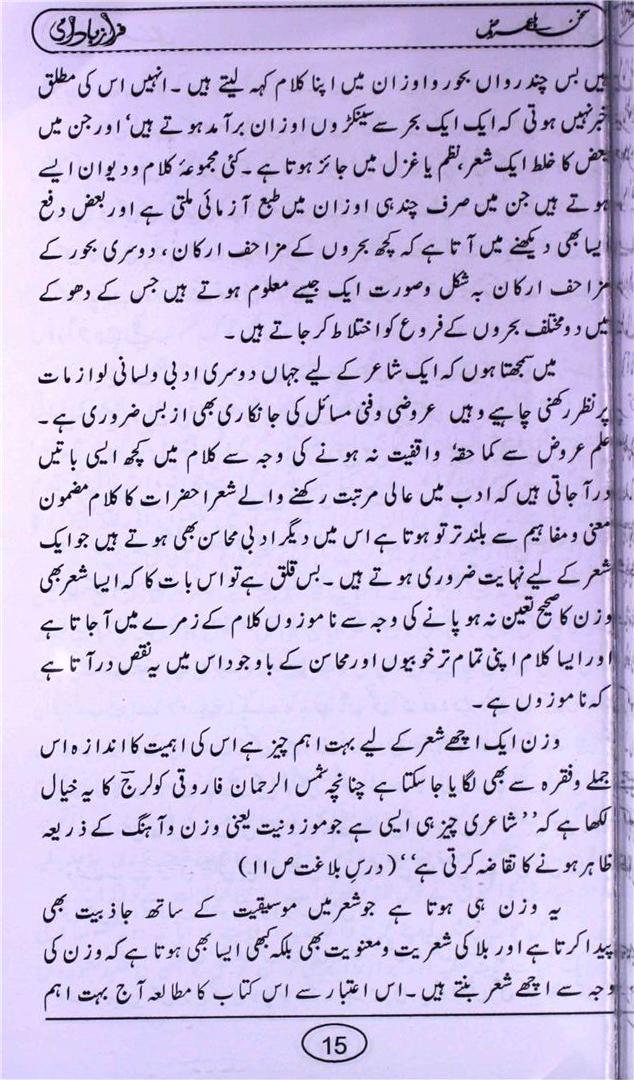 فراز بادامی
ہیں بس چند رواں بحور و اوزان میں اپنا کلام کہہ لیتے ہیں ۔ انہیں اس کی مطلق
خبر نہیں ہوتی کہ ایک ایک بحر سے سینکڑوں اوزان برآمد ہوتے ہیں‘ اور جن میں
بعض کا خلط ایک شعر، نظم یا غزل میں جائز ہوتا ہے ۔ کئی مجموعۂ کلام و دیوان ایسے
ہوتے ہیں جن میں صرف چند ہی اوزان میں طبع آزمائی ملتی ہے اور بعض دفع
ایسا بھی دیکھنے میں آتا ہے کہ کچھ بحروں کے مزاحف ارکان ، دوسری بحور کے
مزاحف ارکان بہ شکل و صورت ایک جیسے معلوم ہوتے ہیں جس کے دھوکے
میں دو مختلف بحروں کے فروع کو اختلاط کر جاتے ہیں ۔
میں سمجھتا ہوں کہ ایک شاعر کے لیے جہاں دوسری ادبی و لسانی لوازمات
پر نظر رکھنی چاہیے وہیں عروضی و فنی مسائل کی جانکاری بھی از بس ضروری ہے ۔
علم عروض سے کما حقہٗ واقفیت نہ ہونے کی وجہ سے کلام میں کچھ ایسی باتیں
در آجاتی ہیں کہ ادب میں عالی مرتبت رکھنے والے شعرا حضرات کا کلام مضمون
معنی و مفاہیم سے بلند تر تو ہوتا ہے اس میں دیگر ادبی محاسن بھی ہوتے ہیں جو ایک
شعر کے لیے نہایت ضروری ہوتے ہیں ۔ بس قلق ہے تو اس بات کا کہ ایسا شعر بھی
وزن کا صحیح تعین نہ ہو پانے کی وجہ سے ناموزوں کلام کے زمرے میں آجاتا ہے
اور ایسا کلام اپنی تمام تر خوبیوں اور محاسن کے باوجود اس میں یہ نقص در آتا ہے
کہ ناموزوں ہے ۔
وزن ایک اچھے شعر کے لیے بہت اہم چیز ہے اس کی اہمیت کا اندازہ اس
جملے و فقرہ سے بھی لگایا جا سکتا ہے چنانچہ شمس الرحمان فاروقی کولرج کا یہ خیال
لکھا ہے کہ ’’شاعری چیز ہی ایسی ہے جو موزونیت یعنی وزن و آہنگ کے ذریعہ
ظاہر ہونے کا تقاضہ کرتی ہے‘‘ (درسِ بلاغت ص ۱۱)
یہ وزن ہی ہوتا ہے جو شعر میں موسیقیت کے ساتھ جاذبیت بھی
پیدا کرتا ہے اور بلا کی شعریت و معنویت بھی بلکہ کبھی ایسا بھی ہوتا ہے کہ وزن کی
وجہ سے اچھے شعر بنتے ہیں ۔ اس اعتبار سے اس کتاب کا مطالعہ آج بہت اہم
15